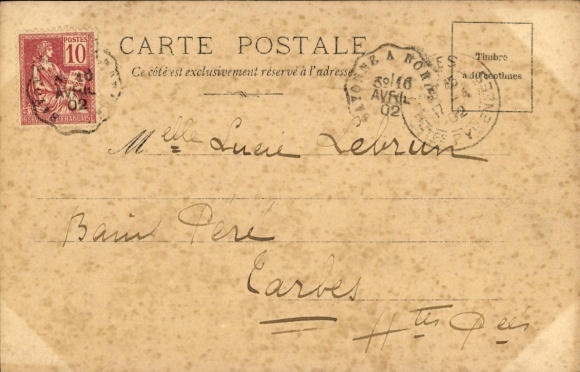 CARTE POSTALE
Ce côté est exclusivement réservé à l'adresse
Timbre
à 10 centimes
10
FRANÇAISE
16
AVRIL
02
BAYONNE A
16
AVRIL
02
17
02
Melle Lucie Lebrun
Bains Péré
Tarbes
Htes Pées